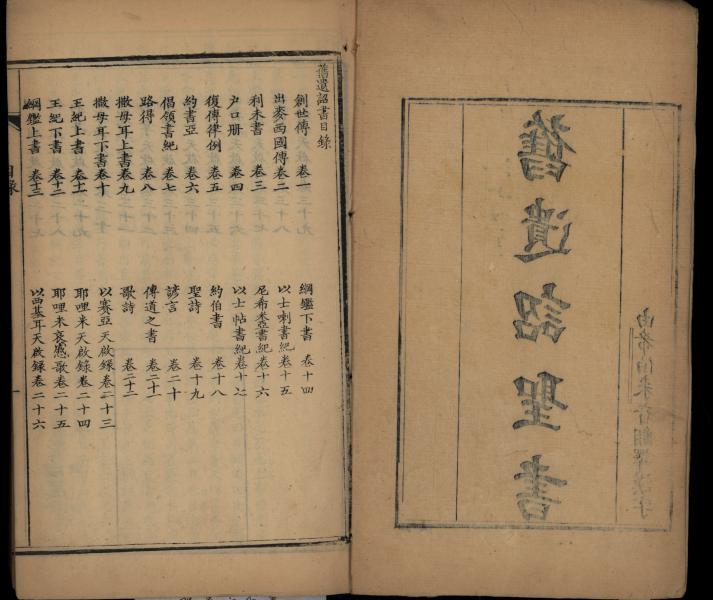 由希伯来音翻譯漢字
舊遺詔聖書
舊遺詔書目錄
創世傳 卷一
出麥西國傳 卷二
利未書 卷三
户口册 卷四
復傳律例 卷五
約書亞 卷六
倡領書紀 卷七
路得 卷八
撒母耳上書 卷九
撒母耳下書 卷十
王紀上書 卷十一
王紀下書 卷十二
綱鑑上書 卷十三
綱鑑下書 卷十四
以士喇書紀 卷十五
尼希米亞書紀 卷十六
以士帖書紀 卷十七
約伯書 卷十八
聖詩 卷十九
諺言 卷二十
傳道之書 卷二十一
歌詩 卷二十二
以賽亞天啟錄 卷二十三
耶哩米天啟錄 卷二十四
耶哩米哀惥歌 卷二十五
以西基耳天啟錄 卷二十六
目錄
一